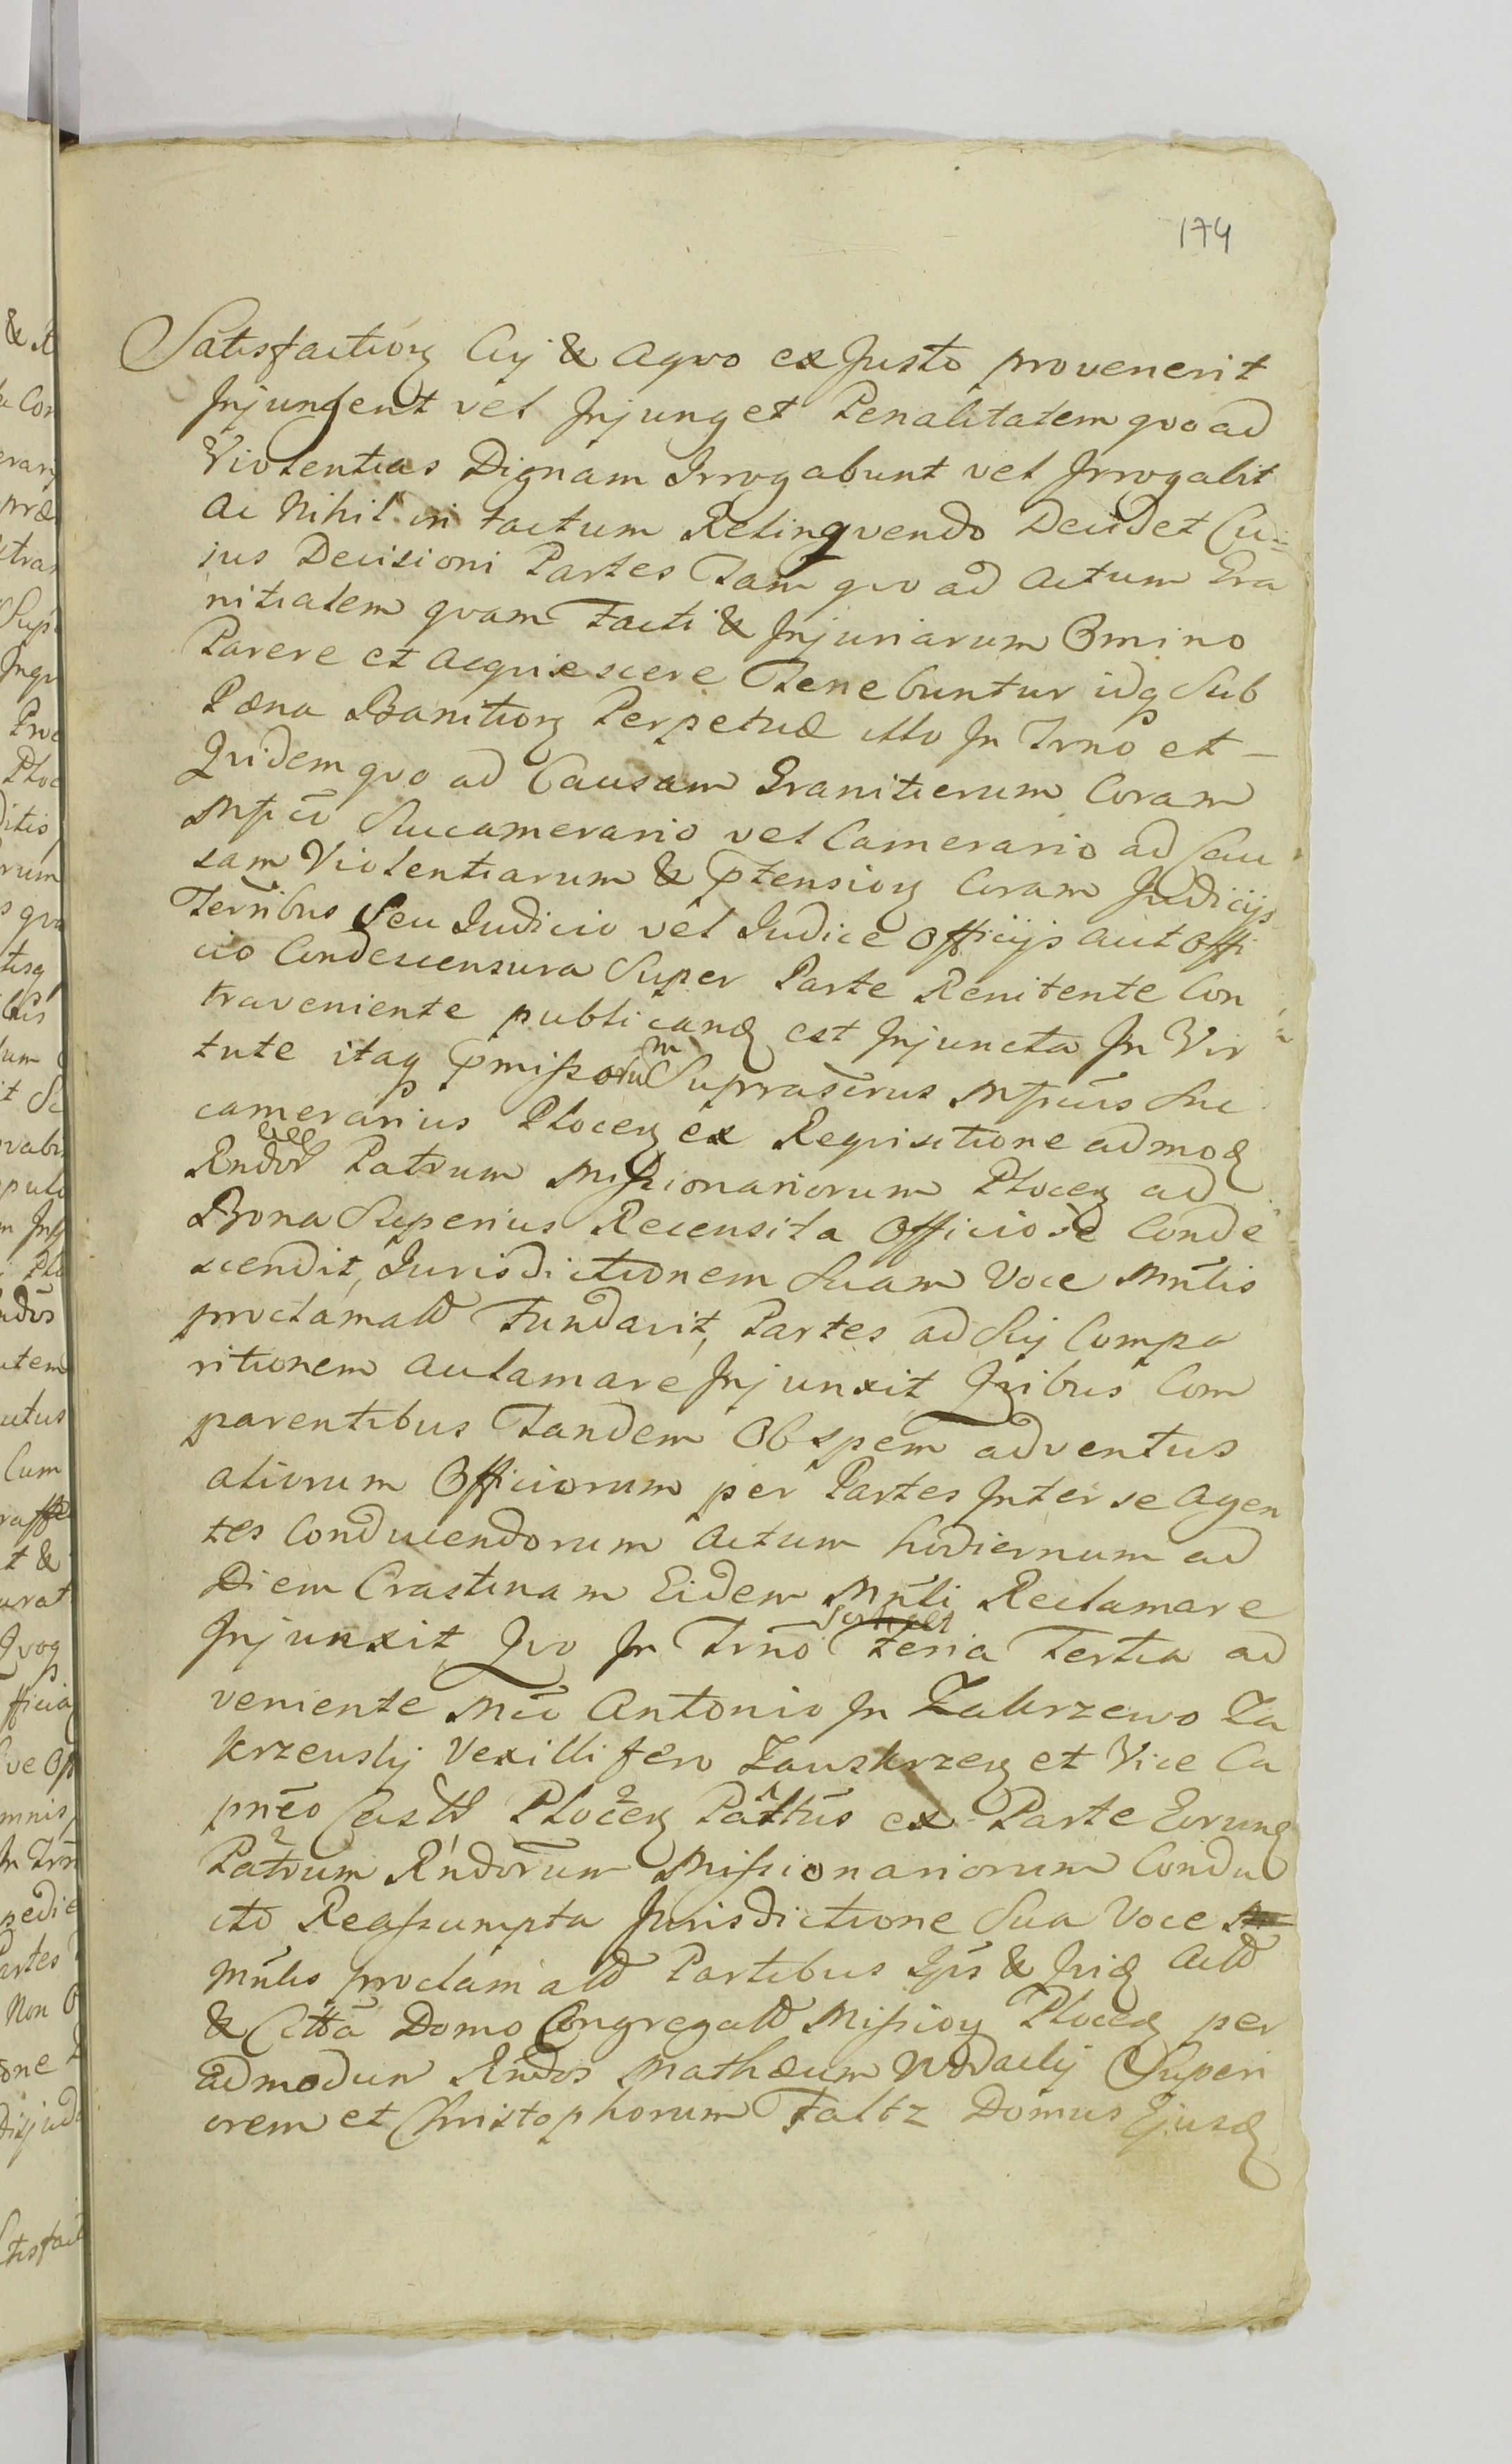 174
Satisfactiong Cuj & Aqvo ex Justo provenerit
Injungent vel Injunget Penalitatem qvo ad
Violentias Dignam Irrogabunt vel Irrogabit
Ac Nihil in tactum Relinqvendo Decidet Cu=
ius Decisioni Partes Tam qvo ad Actum Gra
nitialem qvam Facti & Injuriarum Omino
Parere et Acqviescere Tenebuntur idq Sub
Pæna Banitiong Perpetuæ illo In Trno et
Qvidem qvo ad Causam Granitierum Coram
Mfico Succamerario vel Camerario ad Cau
sam Violentiarum & Ptensiong Coram Judicijs
Terribus Seu Judicio vel Judice Officijs aut Offi
cio Condescensura Super Parte Renitente Con
traveniente publicand est Injuncta In Vir
tute itaq Pmissorum Suprascrus Mficus Suc
camerarius Plocen ex Reqvisitione admod
Rndor Patrum Missionariorum Plocen ad
Bona Superius Recensita Officiose Conde
scendit, Jurisdictionem Suam Voce Mnlis
proclamatt Fundavit, Partes ad Sui Compa
ritionem Aclamare Injunxit Qvibus Com
parentibus Tandem Ob spem adventus
aliorum Officiorum per Partes Inter se Agen
tes Conducendorum Actum hodiernum ad
Diem Crastinam Eidem Mnli Reclamare
Injunxit, Qvo In Trno feria Tertia ad
veniente Mco Antonio In Zakrzewo Za
krzewskij Vexillifero Zawskrzen et Vice Ca
pneo Castr Plocen Palttus ex Parte Eorund
Patrum Rndorum Missionariorum Condu
cto Reassumpta Jurisdictione Sua Voce
Mnlis proclamatt Partibus Ipis & Jrid Actt
& Citta Domo Congregatt Mission Plocen per
admodum Rndos Mathæum Wodackij Superi
orem et Christophorum Faltz Domus Ejusd